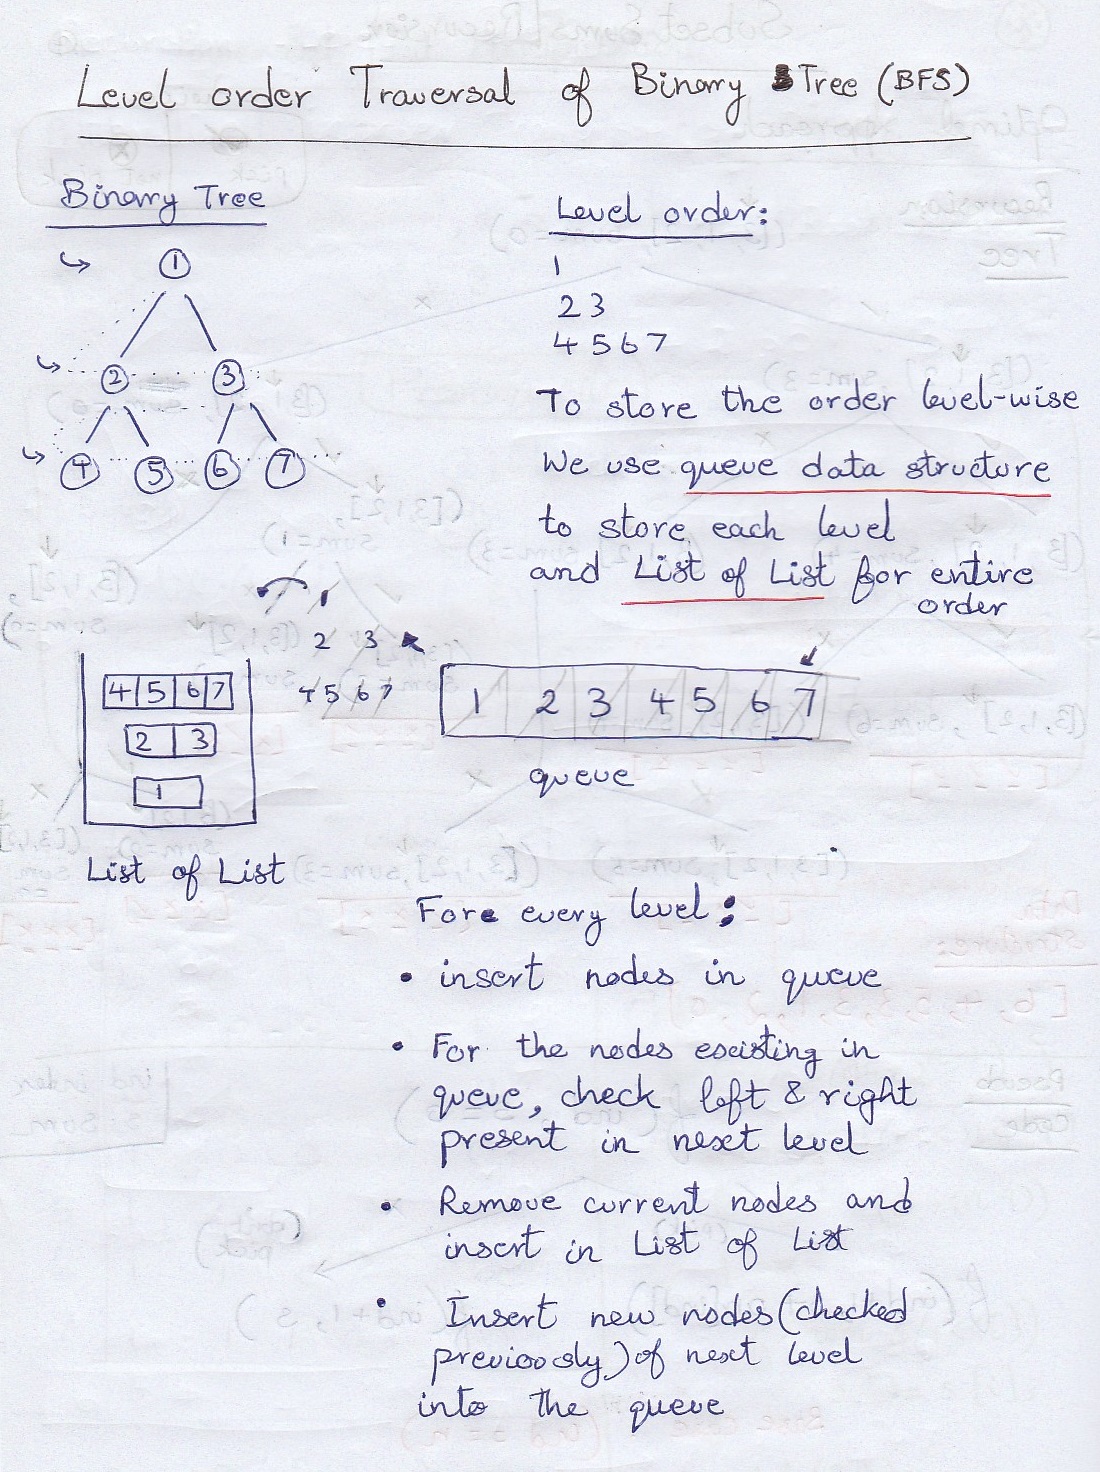 Level order Traversal of Binary Tree (BFS)
Binary Tree
1
2 3
4 5 6 7
Level order:
1
2 3
4 5 6 7
To store the order level-wise
We use queue data structure
to store each level
and List of List for entire
order
1
2 3
4 5 6 7
4 5 6 7
2 3
1
List of List
1 2 3 4 5 6 7
queue
For every level:
• insert nodes in queue
• For the nodes existing in
queue, check left & right
present in next level
• Remove current nodes and
insert in List of List
• Insert new nodes (checked
previously) of next level
into the queue